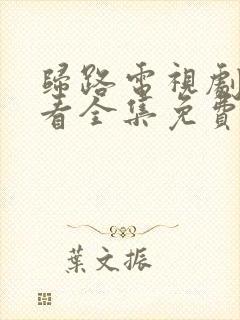 歸路電視劇
看全集免費
葉文振